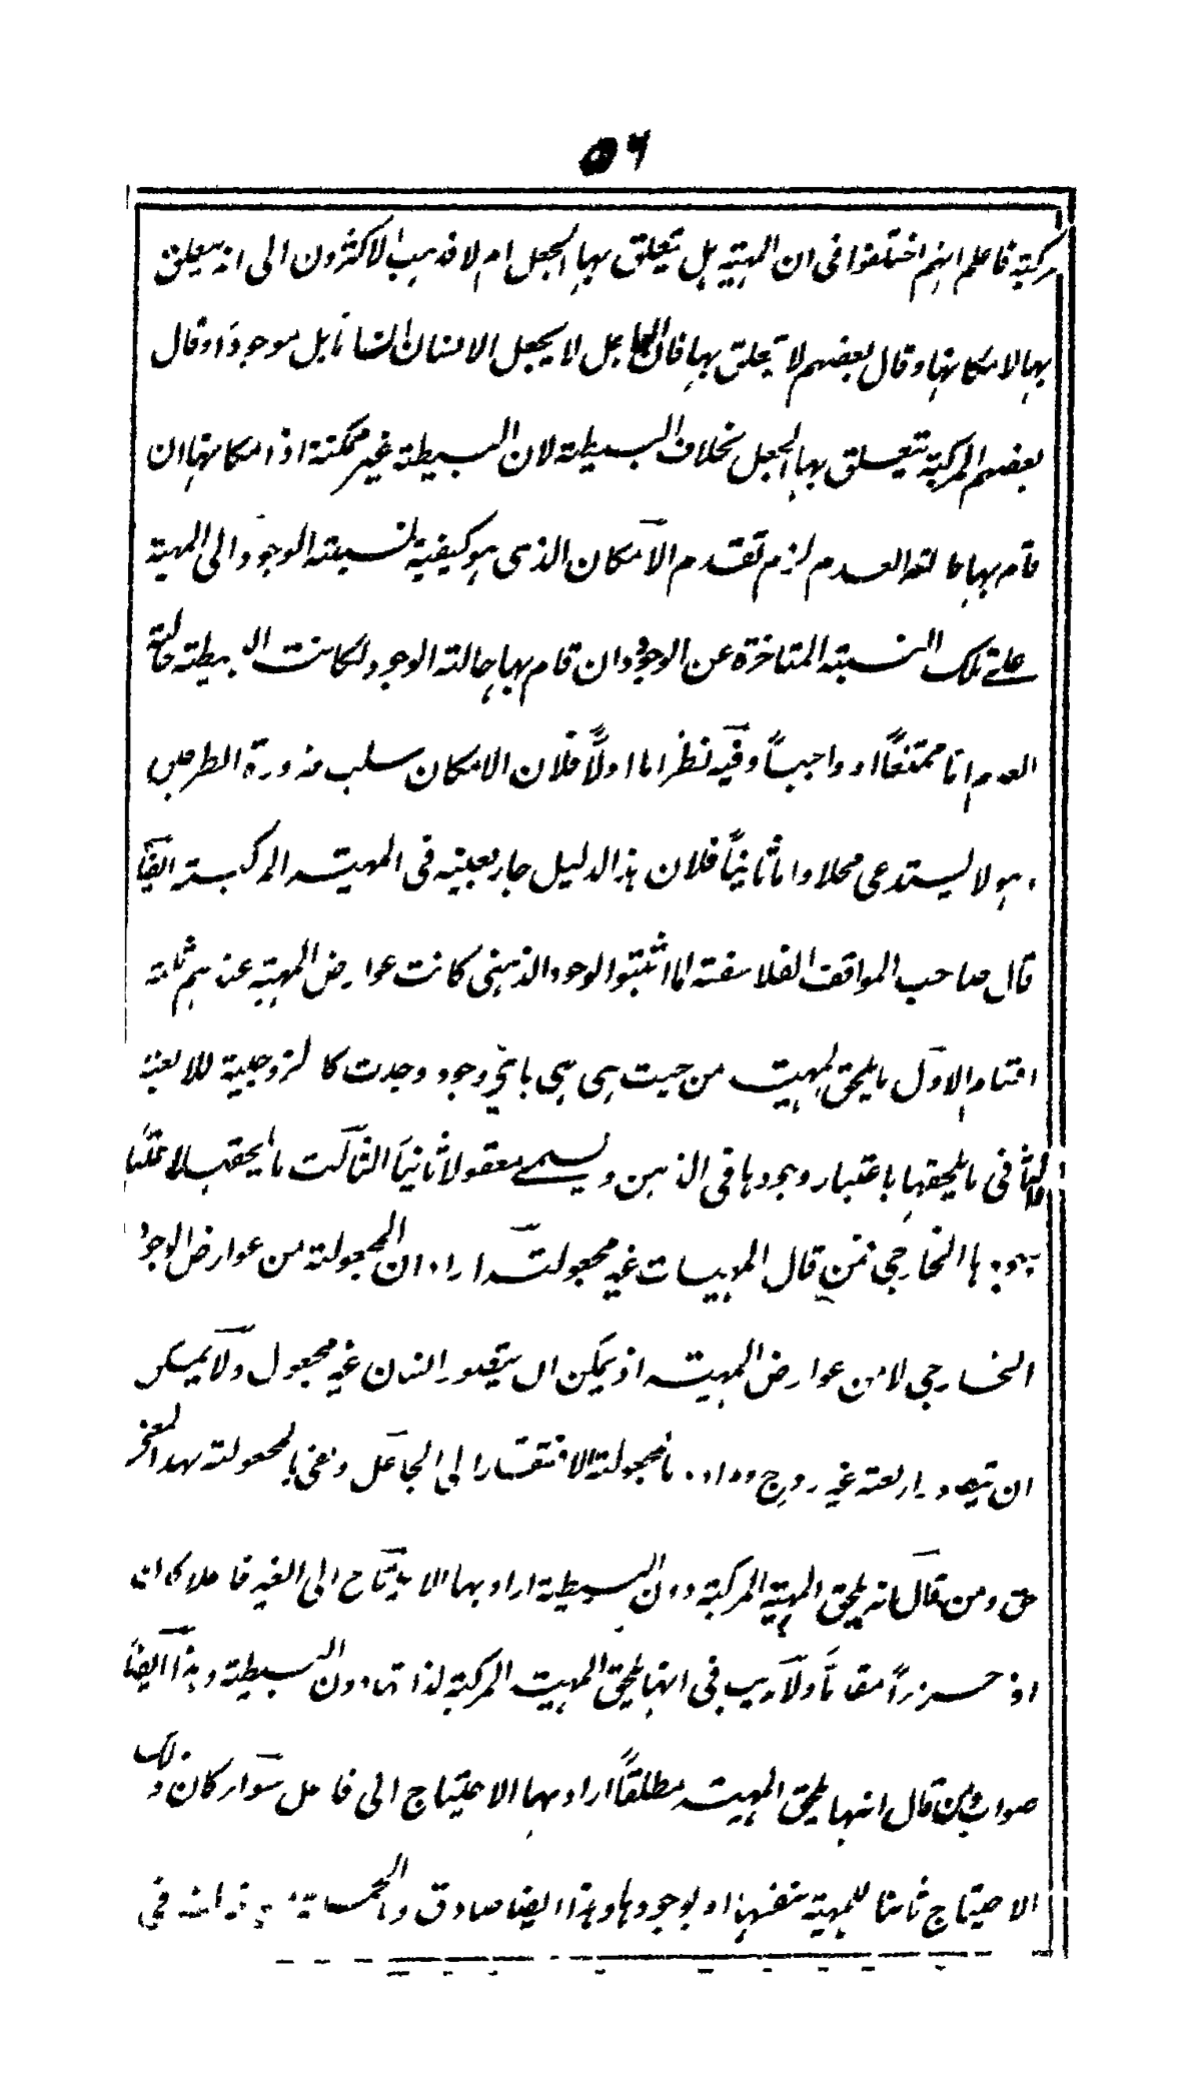 ٥٦
مركبة فاعلم انهم اختلفوا فى ان المهية هل يتعلق بها الجعل ام لا فذهب الاكثرون الى انه يتعلق
بها لامكانها وقال بعضهم لا يتعلق بها فان الجاعل لا يجعل الانسان انسانا بل موجودا وقال
بعضهم المركبة يتعلق بها الجعل بخلاف البسيطة لان البسيطة غير ممكنة اذ امكانها ان
قام بها حالة العدم لزم تقدم الامكان الذى هو كيفية نسبة الوجود الى المهية
على تلك النسبة المتاخرة عن الوجود وان قام بها حالة الوجود لكانت البسيطة حالة
العدم اما ممتنعًا او واجبًا وفيه نظر اما اولًا فلان الامكان سلب ضرورة الطرفين
وهو لا يستدعى محلا واما ثانيًا فلان هذا الدليل جار بعينه فى المهية المركبة ايضًا
قال صاحب المواقف الفلاسفة لما اثبتوا الوجود الذهنى كانت عوارض المهية عندهم ثلثة
اقسام الاول ما يلحق المهية من حيث هى هى باى وجود وجدت كالزوجية للاربعة
والثانى ما يلحقها باعتبار وجودها فى الذهن ويسمى معقولا ثانيًا الثالث ما يلحقها باعتبار
وجودها الخارجى فمن قال المهيات غير مجعولة اراد ان المجعولة من عوارض الوجود
الخارجى لا من عوارض المهية اذ يمكن ان يتصور انسان غير مجعول ولا يمكن
ان يتصور اربعة غير زوج واراد بالمجعولة الافتقار الى الجاعل ونفى المجعولة بهذا المعنى
حق ومن قال انه يلحق المهية المركبة دون البسيطة اراد بها الاحتياج الى الغير فاعلا كان
او جزءًا مقومًا ولا ريب فى انها يلحق المهية المركبة لذاتها دون البسيطة وهذا ايضًا
صواب ومن قال انها يلحق المهية مطلقًا اراد بها الاحتياج الى فاعل سواء كان ذلك
الاحتياج ثابتا للمهية بنفسها او لوجودها وهذا ايضا صادق فى